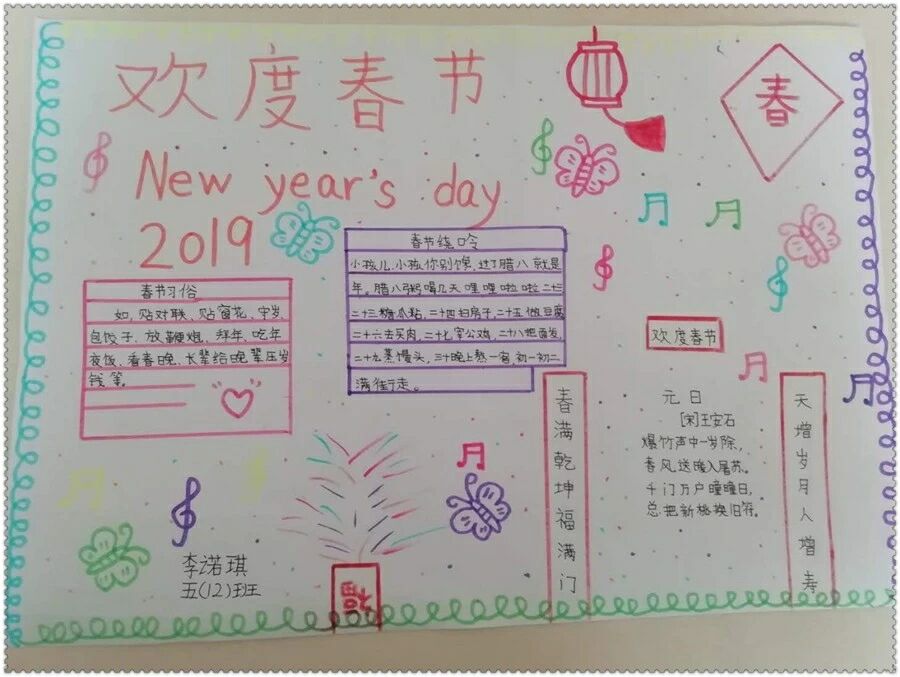 欢度春节
春
New year's day
2019
春节绕呤
小孩儿小孩你别馋,过了腊八就是
年。腊八粥喝几天哩哩啦啦二十三
二十三糖瓜粘,二十四扫房子,二十五做豆腐
二十六去买肉,二十七宰公鸡,二十八把面发,
二十九蒸馒头,三十晚上熬一宿,初一初二
满街走。
春节习俗
如,贴对联、贴窗花、守岁、
包饺子、放鞭炮、拜年、吃年
夜饭、看春晚、长辈给晚辈压岁
钱等。
欢度春节
春满乾坤福满门
元日
[宋]王安石
爆竹声中一岁除,
春风送暖入屠苏。
千门万户曈曈日,
总把新桃换旧符。
天增岁月人增寿
李诺琪
五(12)班
福